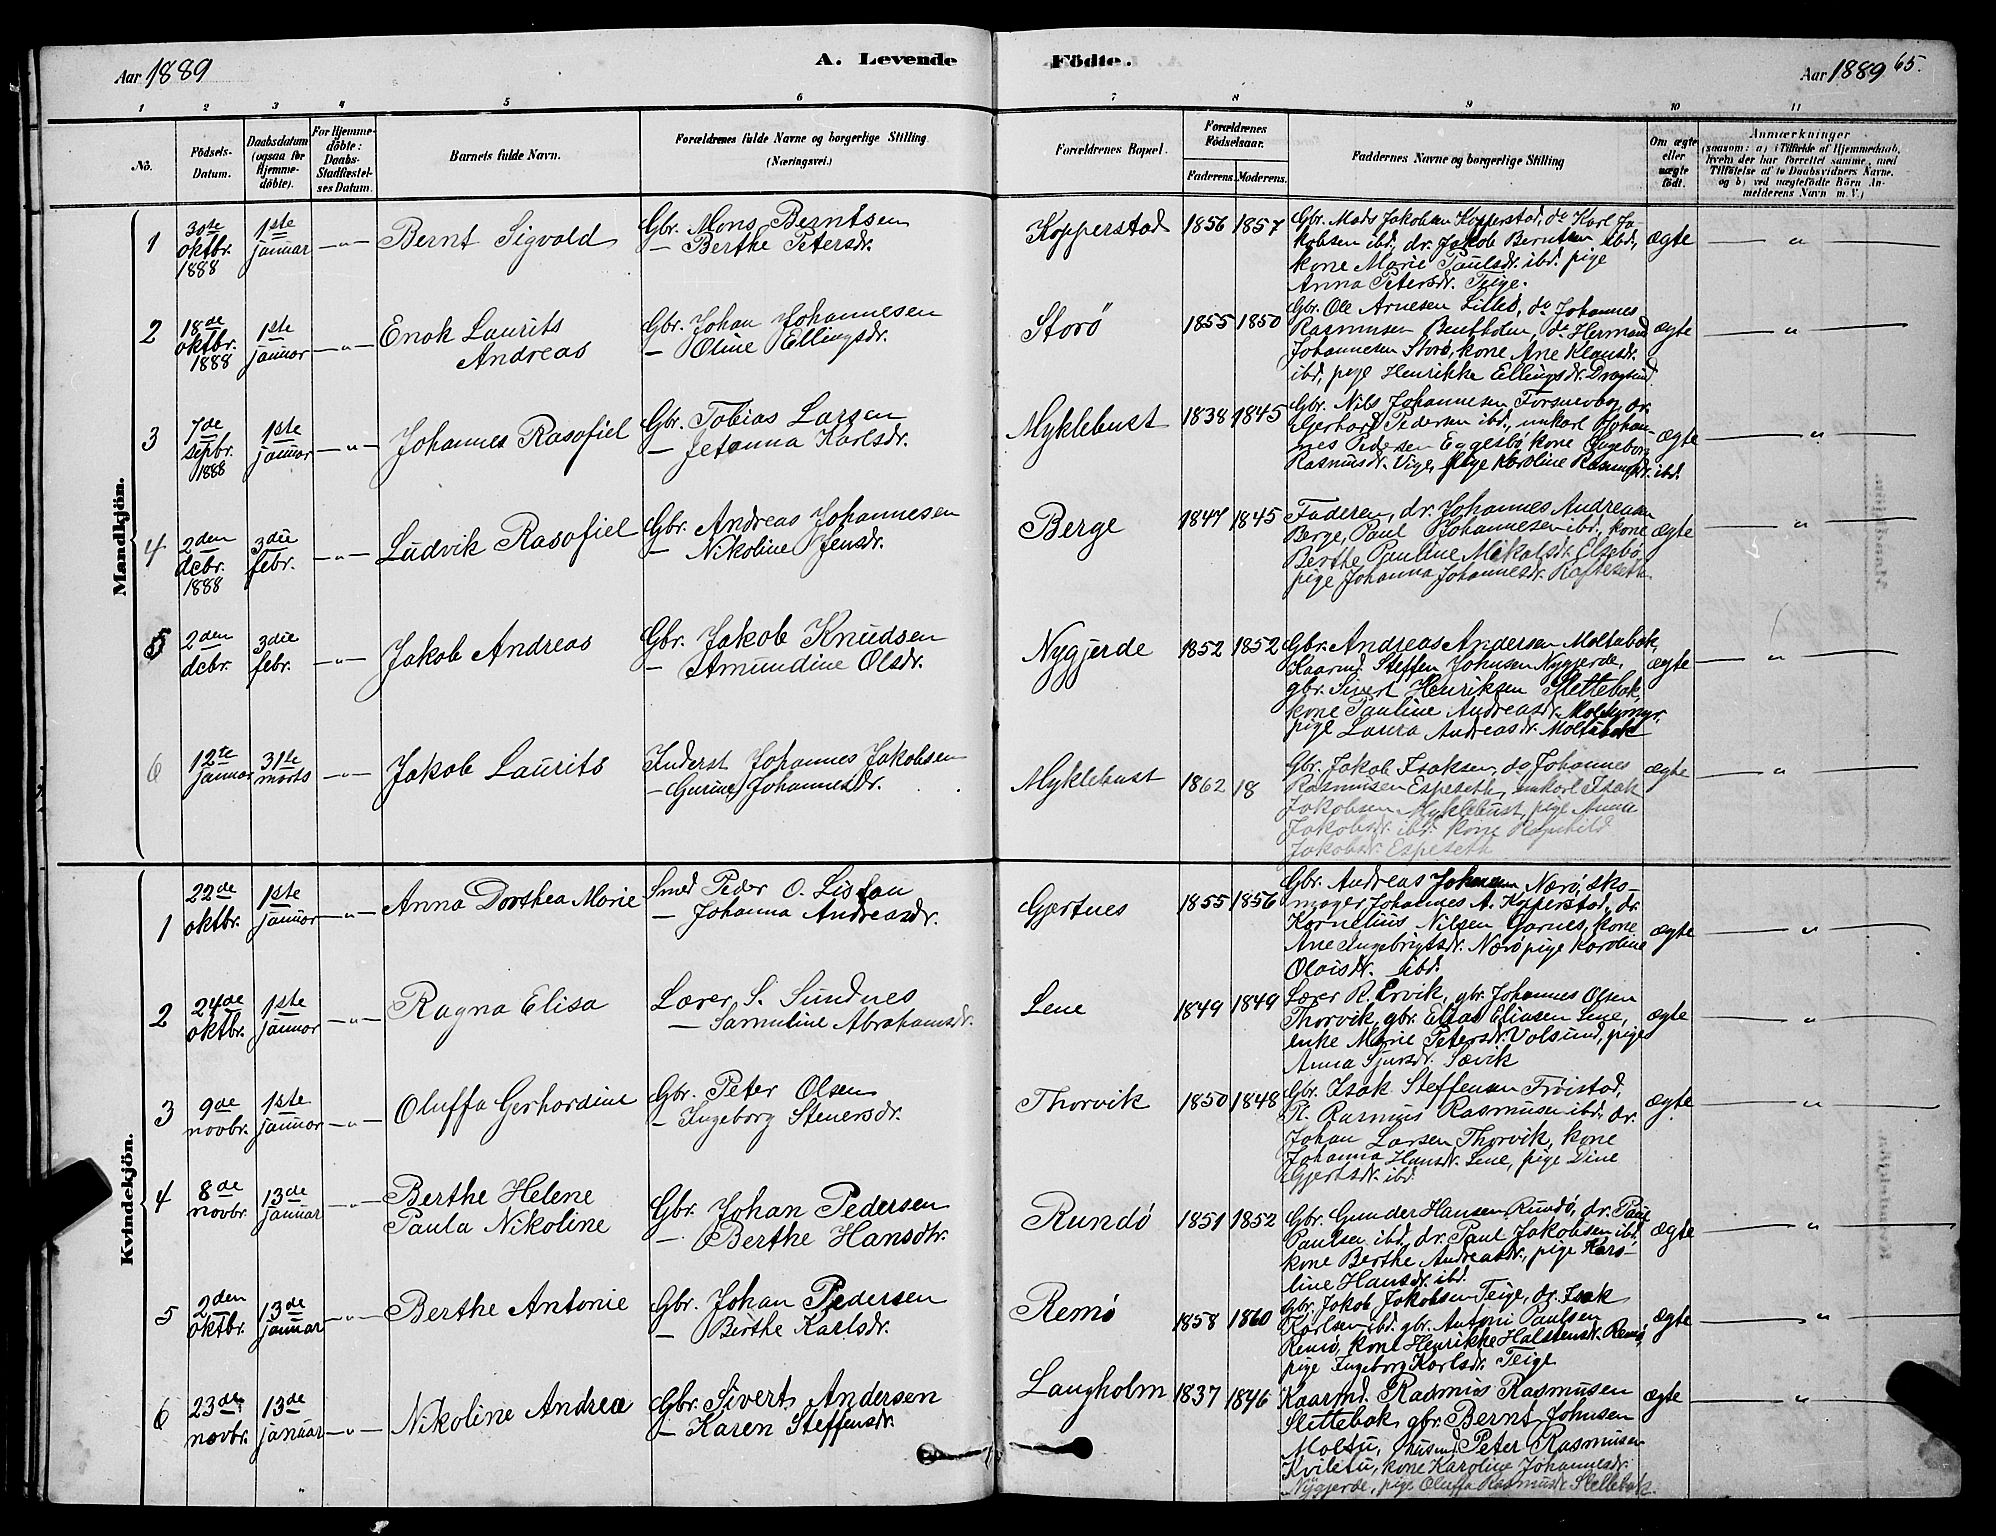 Aar 1889
A. Levende Födte.
Aar 1889 65.
1 2 3 4 5 6 7 8 9 10 11
No.
Födsels-Datum.
Daabsdatum (ogsaa for Hjemme-döbte).
For Hjemme-döbte: Daabs-Stadfæstel-ses Datum.
Barnets fulde Navn.
Forældrenes fulde Navne og borgerlige Stilling (Næringsvei.)
Forældrenes Bopæl.
Forældrenes Födselsaar.
Faderens. Moderens.
Faddernes Navne og borgerlige Stilling
Om ægte eller uægte födt.
Anmærkninger
(saasom: a) i Tilfælde af Hjemmedaab,
hvem der har forrettet samme, med
Tilföielse af to Daabsvidners Navne,
og b) ved uægtefödte Börn An-
melderens Navn m. V.)
Mandkjön.
1 30te oktbr. 1888 1ste januar —"— Bernt Sigvald
Gbr. Mons Berntsen
— Berthe Petersdr.
Kopperstad 1856 1857
Gbr. Mads Jakobsen Kopperstad, do Karl Ja-
kobsen ibd., dr. Jakob Berntsen ibd.,
kone Marie Paulsdr. ibd. pige
Anna Petersdr. Teige.
ægte — " —
2 18de oktbr. 1888 1ste januar —"— Enok Laurits
Andreas
Gbr. Johan Johannesen
— Oline Ellingsdr.
Storö 1855 1850
Gbr. Ole Arnesen Lillö, do Johannes
Rasmusen, do Herman
Johannesen Storö, kone Ane Klausdr.
ibd, pige Henrikke Ellingsdr. Dragsund.
ægte — " —
3 7de septbr. 1888 1ste januar —"— Johannes Rasofiel
Gbr. Tobias Larsen
— Jetanna Karlsdr.
Myklebust 1838 1845
Gbr. Nils Johannesen, dr.
Gerhard Pedersen ibd., unkarl Johan-
nes Pedersen Eggesbö kone Ingeborg
Rasmusdr. Vige, pige Karoline Rasmusdr. ibd.
ægte — " —
4 2den debr. 1888 3die febr. —"— Ludvik Rasofiel
Gbr. Andreas Johannesen
— Nikoline Jensdr.
Berge 1847 1845
Faderen, dr. Johannes Andreasen
Berge, Paul Johannesen ibd., kone
Berthe Pauline Mikalsdr. Elsebö
pige Johanna Johannesdr. Rafteseth
ægte — " —
5 2den debr. 3die febr. —"— Jakob Andreas
Gbr. Jakob Knudsen
— Amundine Olsdr.
Nygjerde 1852 1852
Gbr. Andreas Andersen Moltubak,
Kaarmd. Steffen Johnsen Nygjerde,
gbr. Sivert Henriksen Slettebak,
kone Pauline Andreasdr. Moltumyr,
pige Laura Andreasdr. Moltubak
ægte — " —
6 12te januar 31te marts —"— Jakob Laurits
Inderst Johannes Jakobsen
— Gurine Johannesdr.
Myklebust 1862 18
Gbr. Jakob Isaksen, do Johannes
Rasmusen Espeseth, unkarl Isak
Jakobsen Myklebust, pige Anna
Jakobsdr. ibd. kone Ragnhild
Jakobsdr. Espeseth
ægte — " —
Kvindekjön.
1 22de oktbr. 1ste januar —"— Anna Dorthea Marie
Smed Peder O.
— Johanna Andreasdr.
Gjertnes 1855 1856
Gbr. Andreas Johnsen Nærö, sko-
mager Johannes A. Kopperstad, dr.
Kornelius Nilsen Garnes, kone
Ane Ingebrigtsdr. Nærö pige Karoline
Olaisdr. ibd.
ægte — " —
2 24de oktbr. 1ste januar —"— Ragna Elisa
Lærer S. Sundnes
— Samuline Abrahamsdr.
Lene 1849 1849
Lærer R. Ervik, gbr. Johannes Olsen
Thorvik, gbr. Elias Eliasen Lene,
enke Marie Petersdr. Volsund, pige
Anna Sjursdr. Sævik
ægte — " —
3 9de novbr. 1ste januar —"— Oluffa Gerhardine
Gbr. Peter Olsen
— Ingeborg Stenersdr.
Thorvik 1850 1848
Gbr. Isak Steffensen Fröistad,
Pl. Rasmus Rasmusen ibd., dr.
Johan Larsen Thorvik, kone
Johanna Hansdr. Lene, pige Dine
Gjertsdr. ibd.
ægte. — " —
4 8de novbr. 13de januar —"— Berthe Helene
Paula Nikoline
Gbr. Johan Pedersen
— Berthe Hansdtr.
Rundö 1851 1852
Gbr. Gunder Hansen Rundö, dr. Paul
Paulsen ibd., dr. Paul Jakobsen ibd.
kone Berthe Andreasdr., pige Karo-
line Hansdr. ibd.
ægte — " —
5 2den oktbr. 13de januar —"— Berthe Antonie
Gbr. Johan Pedersen
— Berthe Karlsdr.
Remö 1858 1860
Gbr. Jakob Jakobsen Teige, dr. Isak
Karlsen ibd. gbr. Antoni Paulsen
Remö, kone Henrikke Halstensdr. Remö,
pige Ingeborg Karlsdr. Teige
ægte — " —
6 23de novbr. 13de januar —"— Nikoline Andrea
Gbr. Sivert Andersen
— Karen Steffensdr.
Langholm 1837 1846
Kaarmd. Rasmus Rasmusen
Slettebak, gbr. Bernt Johnsen
Moltu, husmd. Peter Rasmusen
Kviletu, kone Karoline Johannesdr.
Nygjerde, pige Oluffa Rasmusdr. Slettebak.
ægte — " —